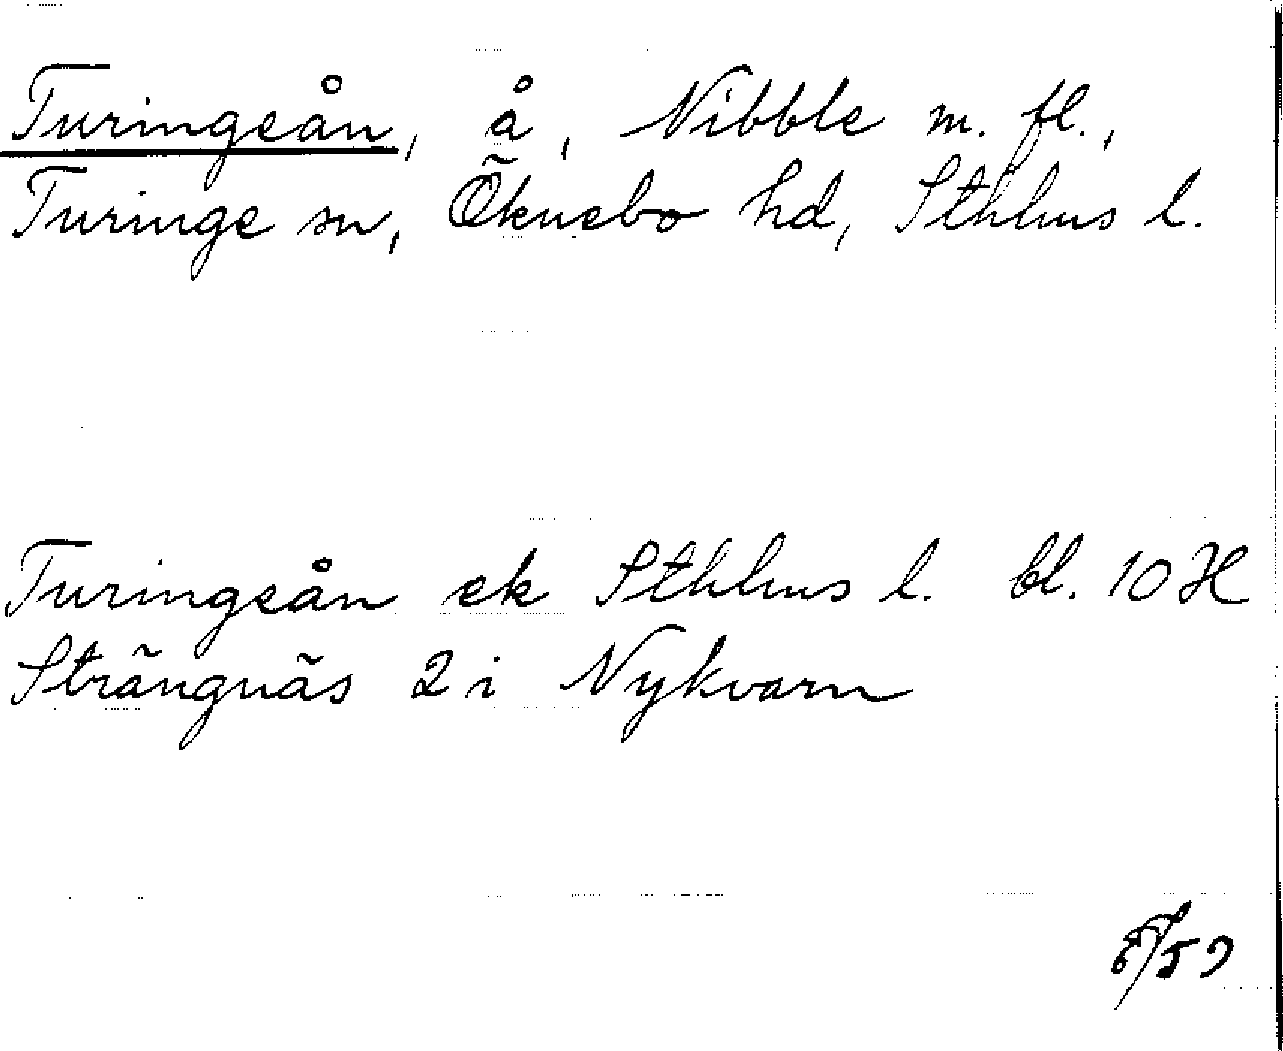 Turingeån, å, Nibble m. fl.,
Turinge sn, Öknebo hd, Sthlms l.
Turingeån ek Sthlms l. bl. 10 H
Strängnäs 2 i Nykvarn